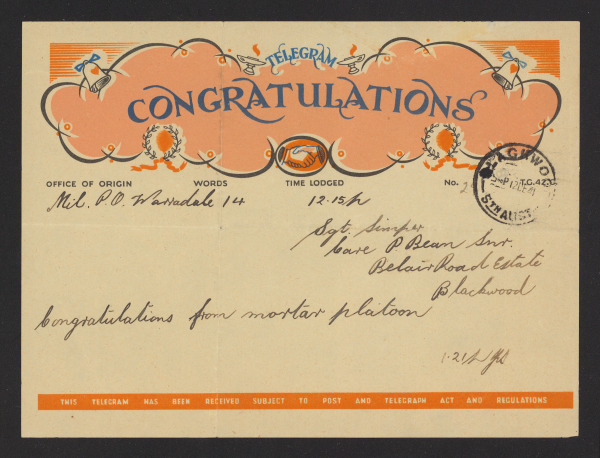 TELEGRAM
CONGRATULATIONS
OFFICE OF ORIGIN WORDS TIME LODGED No. T.G.42
Mil. P.O. Warradale 14 12.15p
BLACKWOOD
STH AUST
Sgt. Simper
Care P Bean Snr.
Belair Road Estate
Blackwood
Congratulations from mortar platoon
1.21p
THIS TELEGRAM HAS BEEN RECEIVED SUBJECT TO POST AND TELEGRAPH ACT AND REGULATIONS